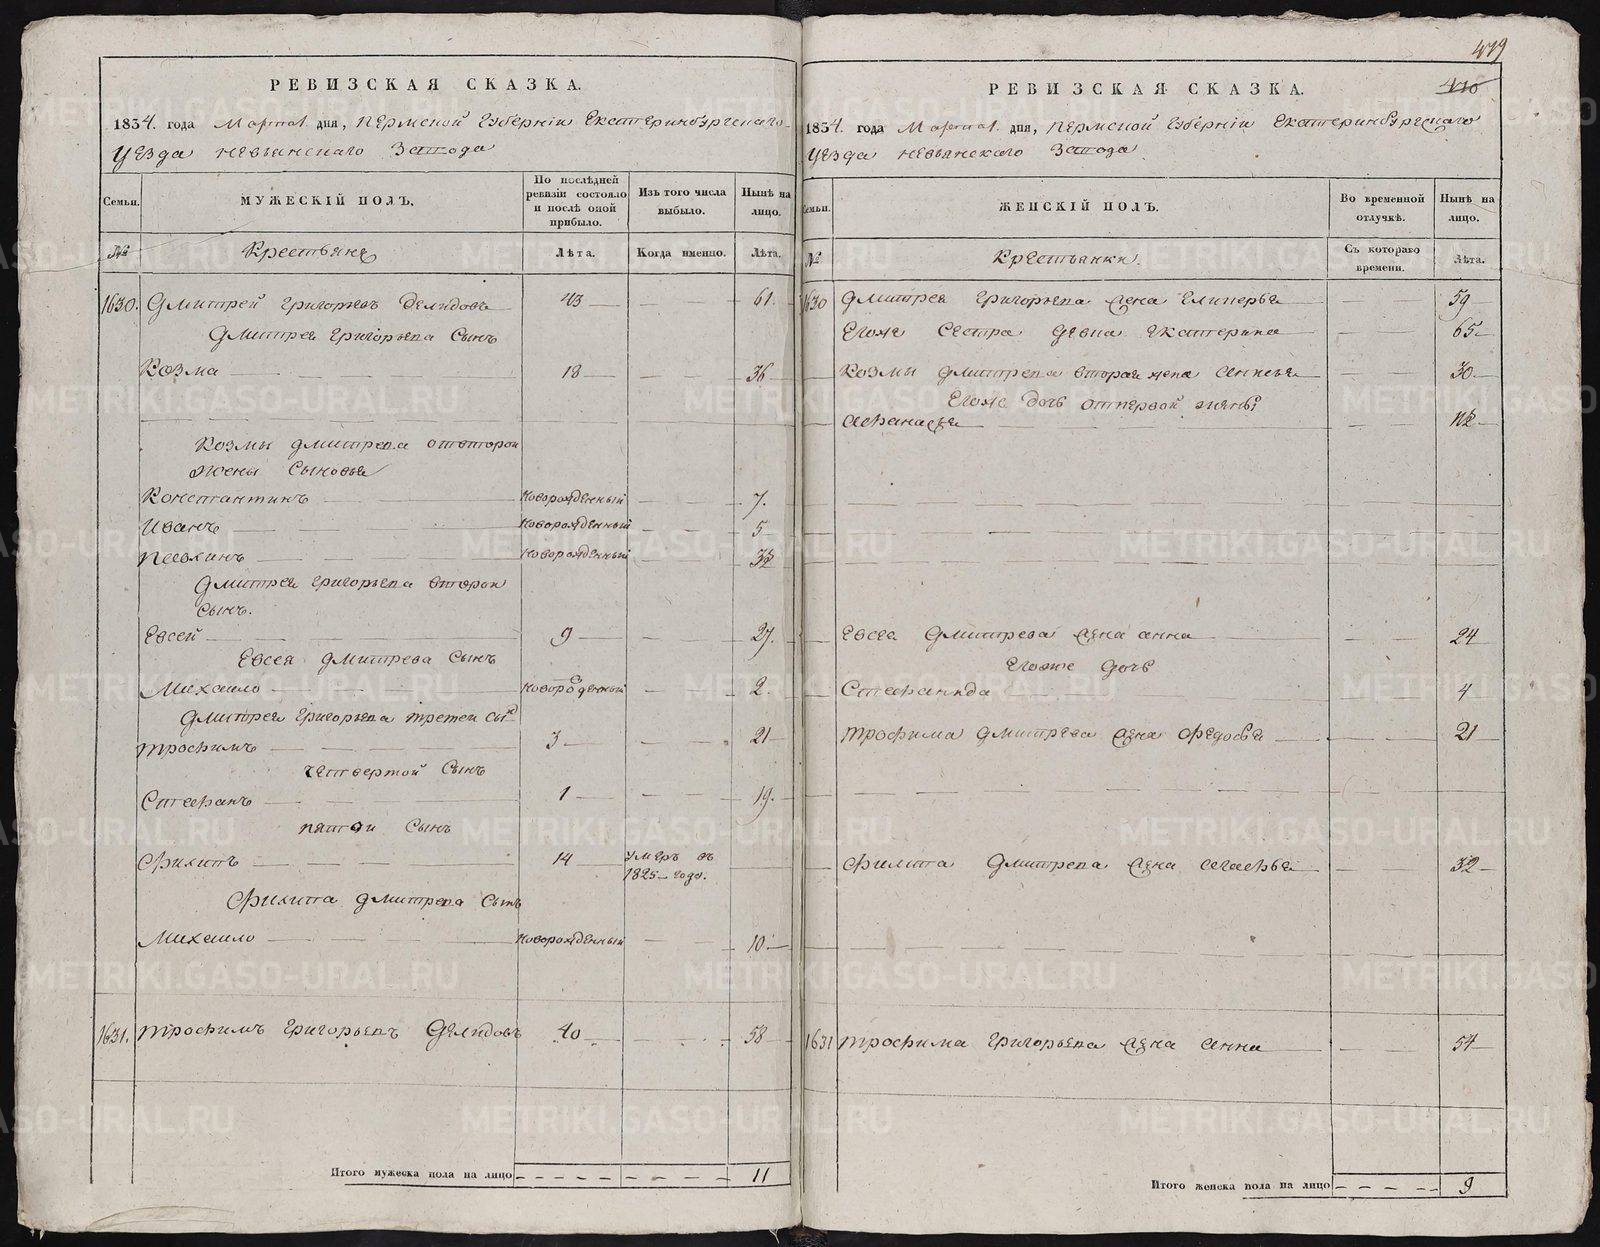 479
410
РЕВИЗСКАЯ СКАЗКА.
1834. года Марта 1. дня, Пермской Губерніи Екатеринбургскаго
Уезда Невьянскаго Завода
Семьи.
МУЖЕСКІЙ ПОЛЪ.
По послѣдней ревизіи состояло и послѣ оной прибыло.
Изъ того числа выбыло.
Нынѣ на лицо.
№
Крестьянъ
Лѣта.
Когда именно.
Лѣта.
1630. Дмитрей Григорьевъ Демидовъ 43 61.
Дмитрея Григорьева Сынъ
Козма 18 36
Козмы Дмитрева отвторой
жены Сыновья
Константинъ Новорожденный 7.
Иванъ Новорожденный 5
Новорожденный
Дмитрея Григорьева второй
Сынъ.
Евсей 9 27.
Евсея Дмитрева Сынъ
Михаило 2.
Дмитрея Григорьева третей Сынъ
Трофимъ 3 21
Четвертой Сынъ
Стефанъ 1 19.
пятой Сынъ
Филипъ 14 Умеръ въ
1825 годе.
Филипа Дмитрева Сынъ
Михаило Новорожденный 10.
1631. Трофимъ Григорьевъ Демидовъ 40 58
Итого мужеска пола на лицо 11
РЕВИЗСКАЯ СКАЗКА.
1834. года Марта 1. дня, Пермской Губерніи Екатеринбургскаго
Уезда Невьянскаго Завода
Семьи.
ЖЕНСКІЙ ПОЛЪ.
Во временной отлучкѣ.
Нынѣ на лицо.
№
Крестьянки.
Съ котораго времени.
Лѣта.
1630 Дмитрея Григорьева жена 59
Егоже Сестра девка Екатерина 65
Козмы Дмитрева вторая жена 30
Егоже дочь отпервой жены
Афанасья
Евсея Дмитрева жена анна 24
Егоже дочь
Стефанида 4
Трофима Дмитрева жена Федосья 21
Филипа Дмитрева жена 32
1631 Трофима Григорьева жена Анна 54
Итого женска пола на лицо 9
METRIKI.GASO-URAL.RU